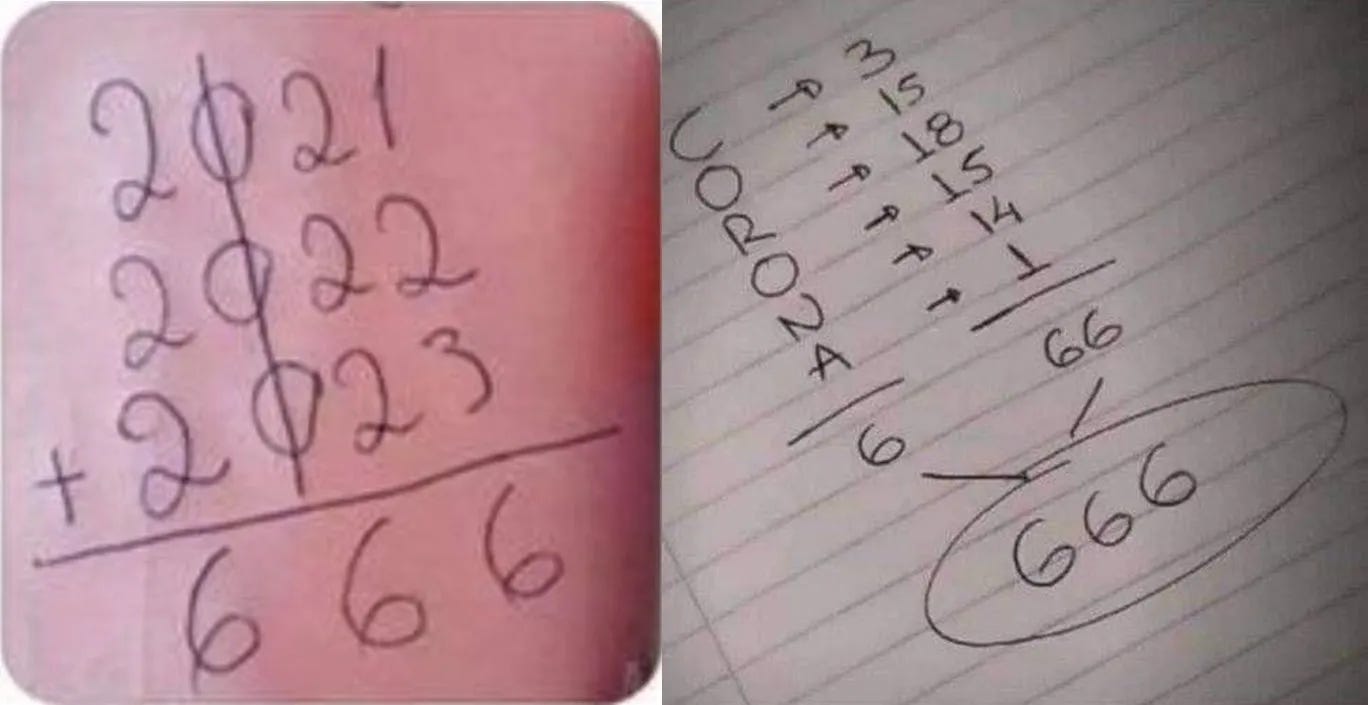 2021
2022
+ 2023
666
CORONA
3
15
18
15
14
1
6
66
666